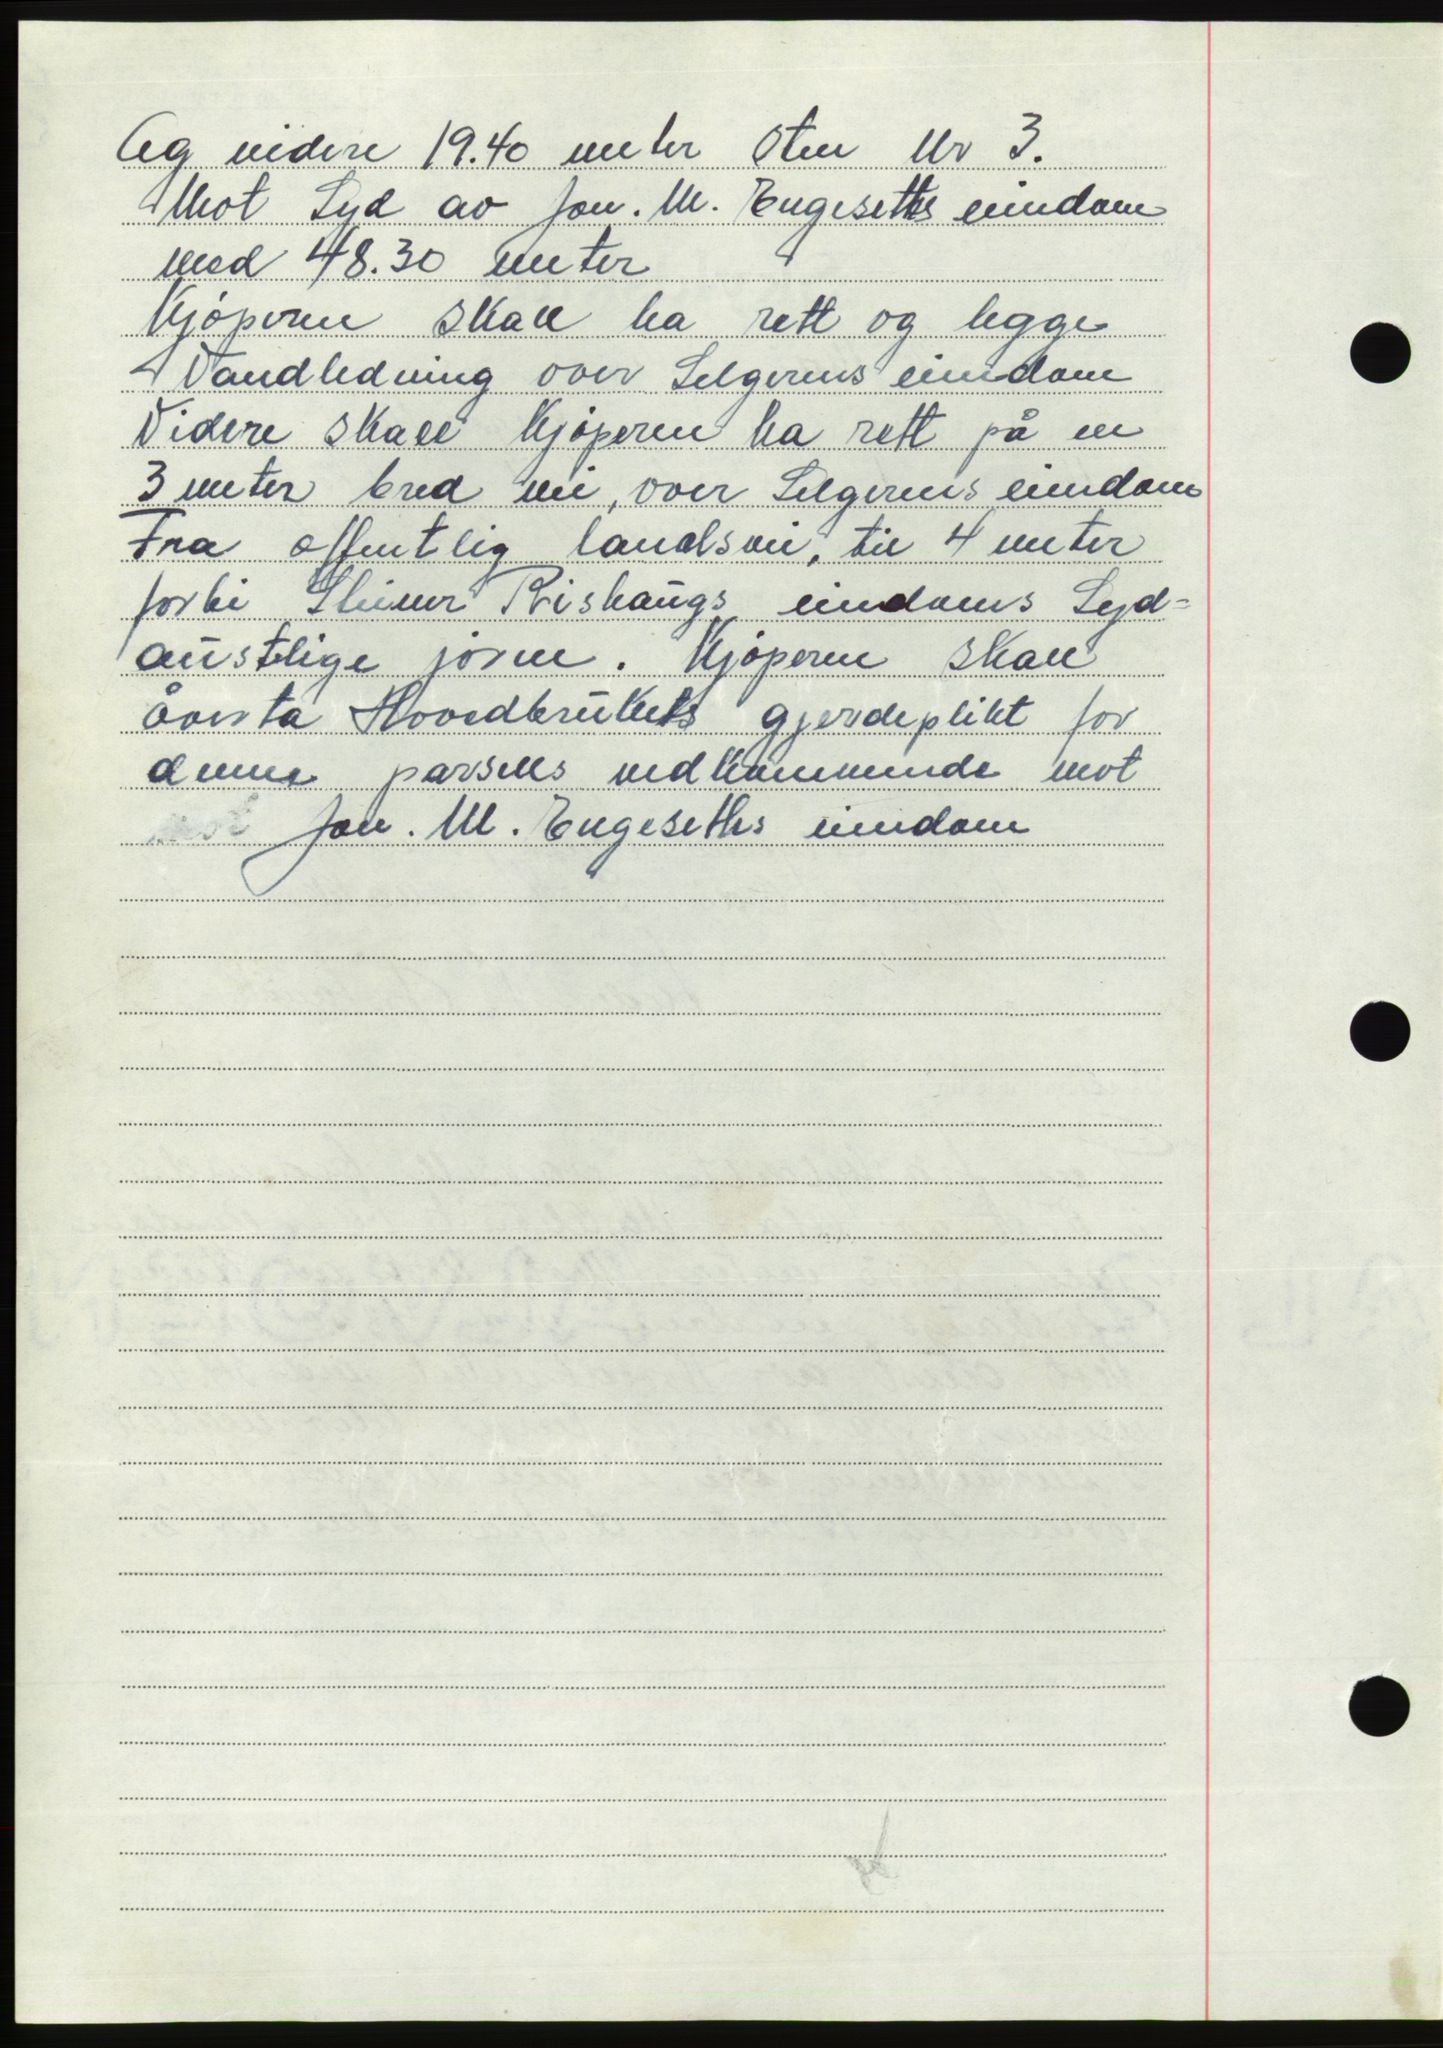 Og videre 19.40 meter Sten Nr 3.
Mot Syd av Jon. M. Engeseths eiendom
med 48.30 meter
Kjøperen skall ha rett og legge
Vandledning over Selgerens eiendom
Videre skall kjøperen ha rett på en
3 meter bred vei, over Selgerens eiendom
Fra offentlig landsvei, til 4 meter
forbi Steinar Rishaugs eiendoms Syd=
austlige jørne. Kjøperen skall
åverta Hovedbrukets gjerdeplikt for
denne parsells vedkommende mot
Jon. M. Engeseths eiendom